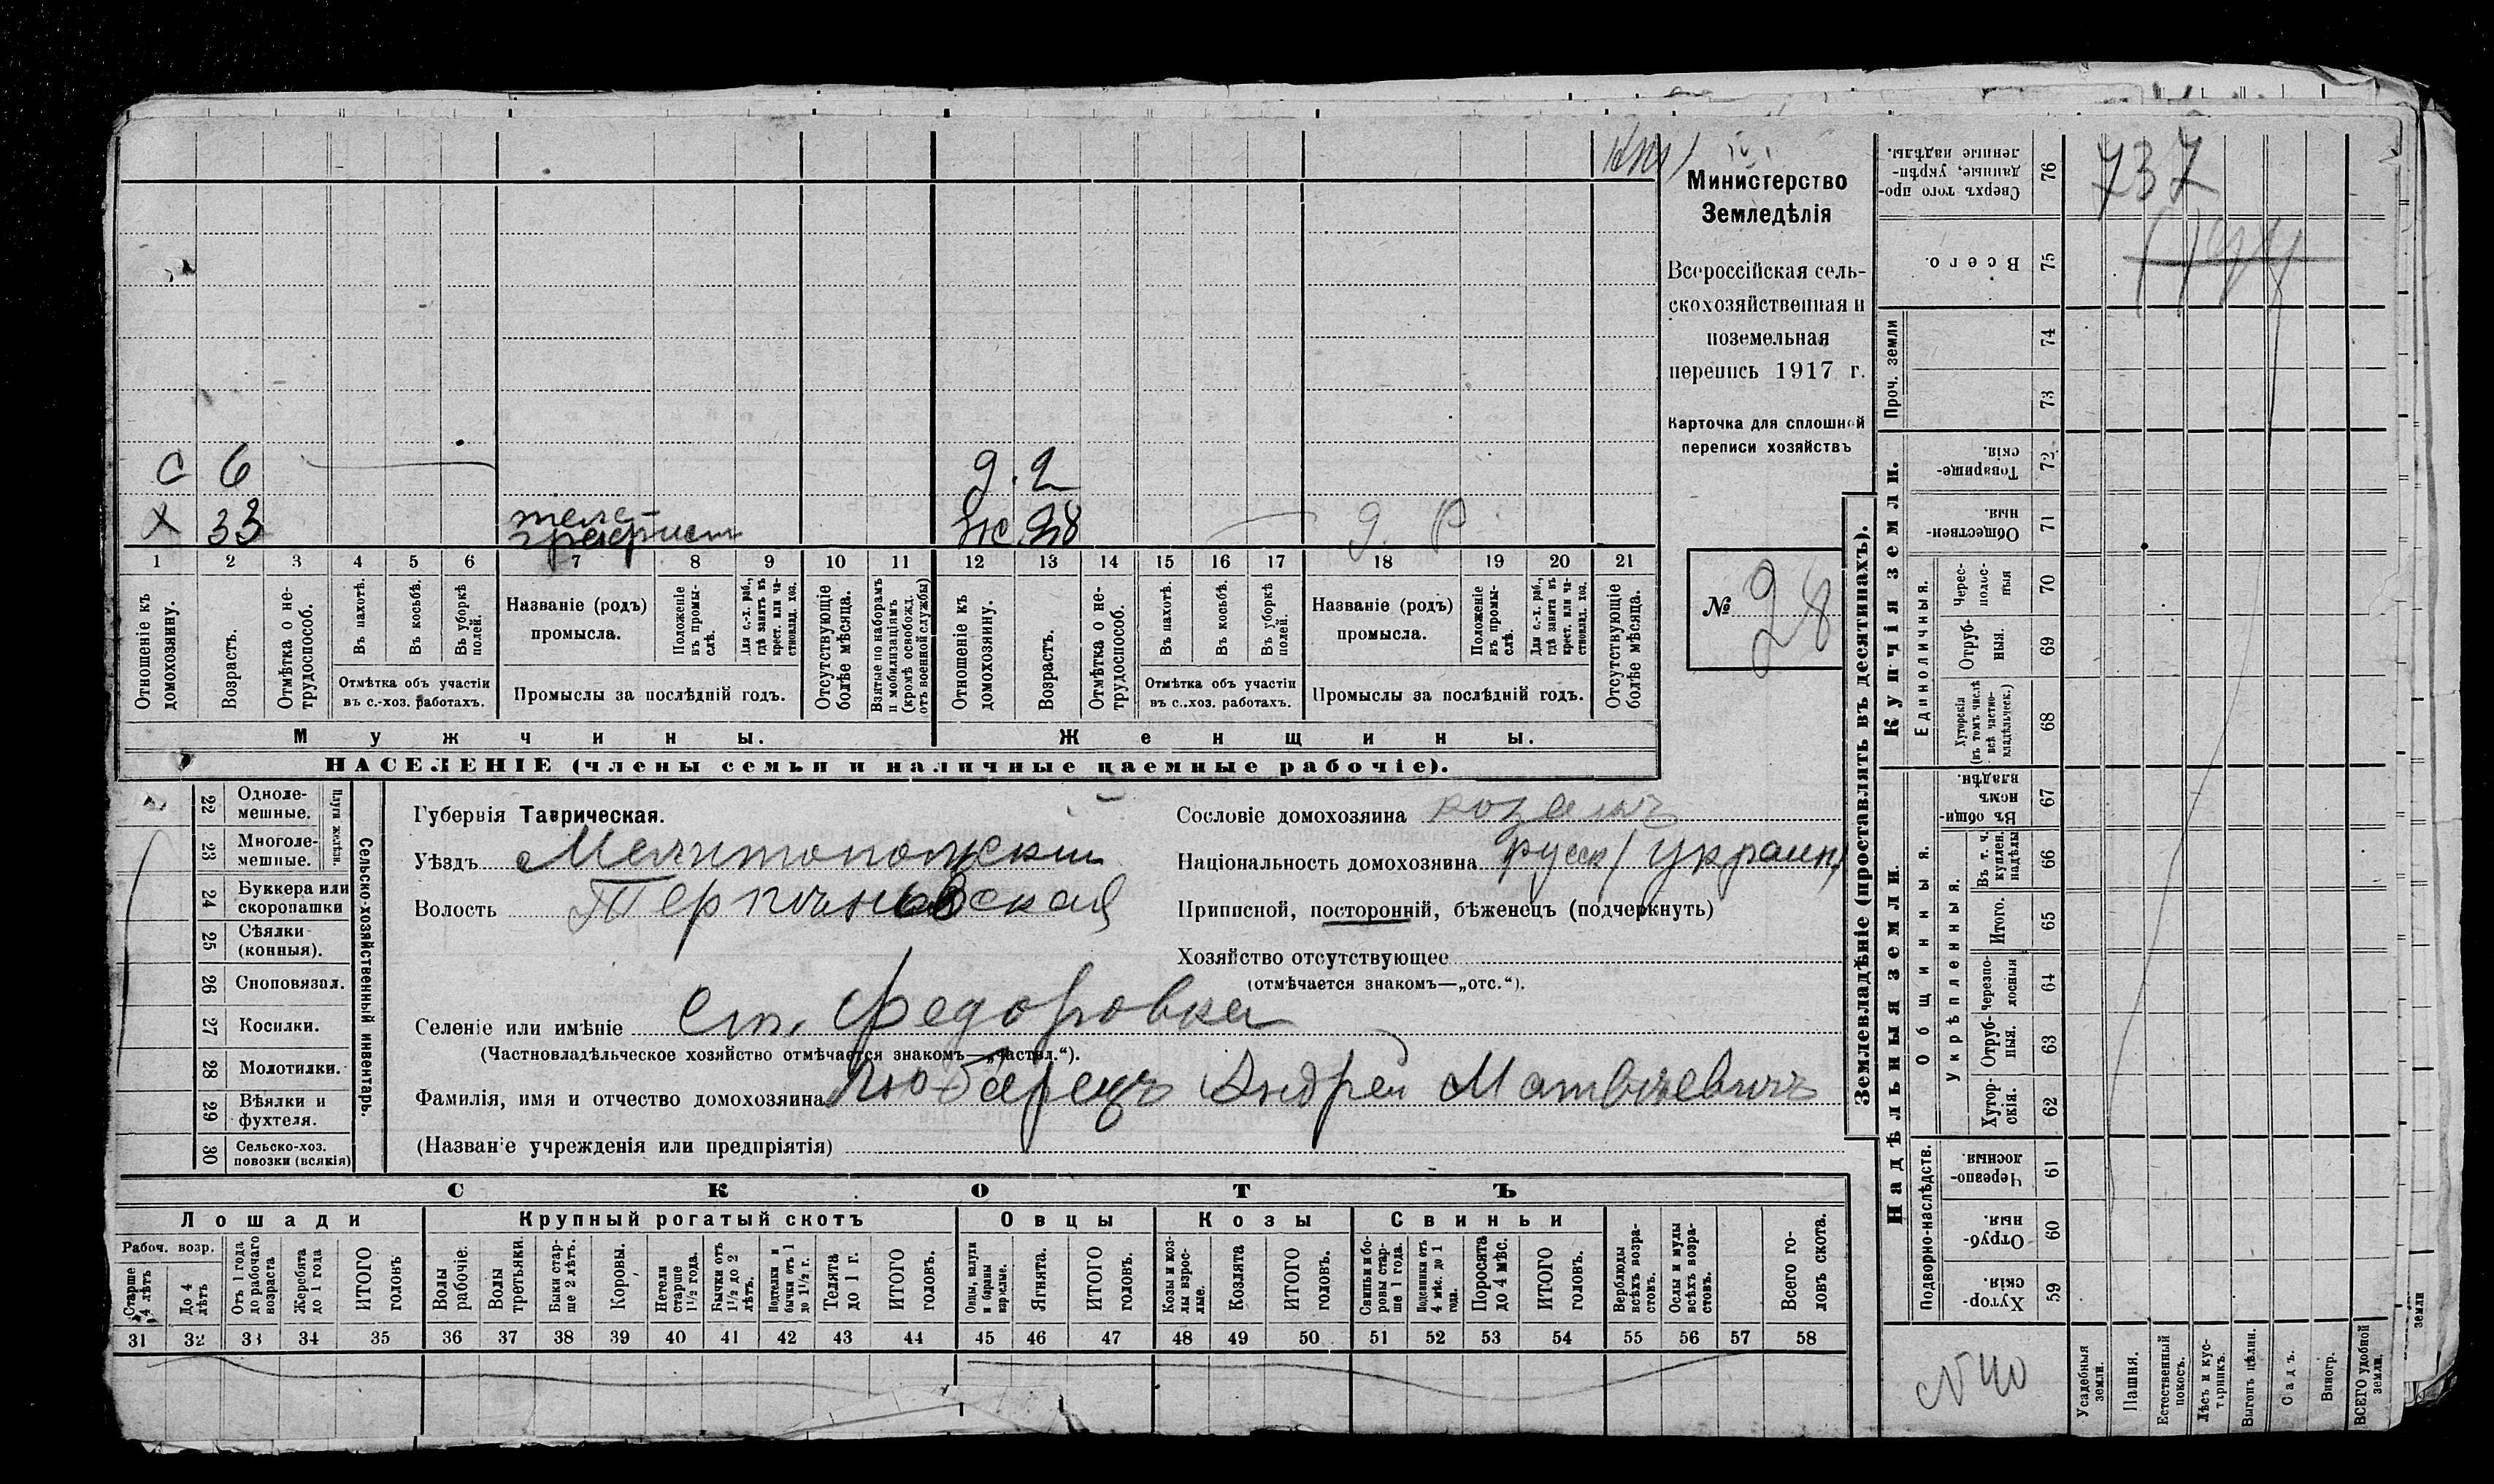 Министерство
Земледѣлія
Всероссійская сель-
скохозяйственная и
поземельная
перепись 1917 г.
Карточка для сплошной
переписи хозяйствъ
№ 28
С 6
д. 2
Х 33 теле-
графист ж. 28
1 2 3 4 5 6 7 8 9 10 11 12 13 14 15 16 17 18 19 20 21
Отношеніе къ домохозяину.
Возрастъ.
Отмѣтка о не-трудоспособ.
Въ пахотѣ.
Въ косьбѣ.
Въ уборкѣ полей.
Отмѣтка объ участіи
въ с.-хоз. работахъ.
Названіе (родъ)
промысла.
Положеніе въ промы-слѣ.
Для с.-х. раб., гдѣ занятъ въ крест. или ча-стновлад. хоз.
Промыслы за послѣдній годъ.
Отсутствующіе болѣе мѣсяца.
Взятые по наборамъ и мобилизаціямъ (кромѣ освобожд. отъ военной службы)
Отношеніе къ домохозяину.
Возрастъ.
Отмѣтка о не-трудоспособ.
Въ пахотѣ.
Въ косьбѣ.
Въ уборкѣ полей.
Отмѣтка объ участіи
въ с..хоз. работахъ.
Названіе (родъ)
промысла.
Положеніе въ промы-слѣ.
Для с.-х. раб., гдѣ занята въ крест. или ча-стновлад. хоз.
Промыслы за послѣдній годъ.
Отсутствующіе болѣе мѣсяца.
Мужчины.
Женщины.
НАСЕЛЕНІЕ (члены семьи и наличные наемные рабочіе).
Сельско-хозяйственный инвентарь.
22 Одноле-
мешные.
23 Многоле-
мешные.
24 Буккера или
скоропашки
25 Сѣялки
(конныя).
26 Сноповязал.
27 Косилки.
28 Молотилки.
29 Вѣялки и
фухтеля.
30 Сельско-хоз.
повозки (всякія)
Губернія Таврическая.
Уѣздъ Мелитопольскій
Волость Терпиньевская
Сословіе домохозяина
Національность домохозяина русск/украин/
Приписной, посторонній, бѣженецъ (подчеркнуть)
Хозяйство отсутствующее
(отмѣчается знакомъ—„отс.“).
Селеніе или имѣніе Ст. Федоровка
(Частновладѣльческое хозяйство отмѣчается знакомъ—„частвл.“).
Фамилія, имя и отчество домохозяина Любарецъ Андрей Матвѣевичъ
(Названіе учрежденія или предпріятія)
СКОТЪ
Лошади
Крупный рогатый скотъ
Овцы
Козы
Свиньи
Рабоч. возр.
Старше 4 лѣтъ
До 4 лѣтъ
Отъ 1 года до рабочаго возраста
Жеребята до 1 года
ИТОГО головъ
Волы рабочіе.
Волы третьяки.
Быки стар-ше 2 лѣтъ.
Коровы.
Нетели старше 1½ года.
Бычки отъ 1½ до 2 лѣтъ.
Подтелки и бычки отъ 1 до 1½ г.
Телята до 1 г.
ИТОГО головъ.
Овцы, валухи и бараны взрослые.
Ягнята.
ИТОГО головъ.
Козы и коз-лы взрос-лые.
Козлята
ИТОГО головъ.
Свиньи и бо-ровы стар-ше 1 года.
Подсвинки отъ 4 мѣс. до 1 года.
Поросята до 4 мѣс.
ИТОГО головъ.
Верблюды всѣхъ возра-стовъ.
Ослы и мулы всѣхъ возра-стовъ.
Всего го-ловъ скота.
31 32 33 34 35 36 37 38 39 40 41 42 43 44 45 46 47 48 49 50 51 52 53 54 55 56 57 58
Землевладѣніе (проставлять въ десятинахъ).
Купчія земли.
Надѣльныя земли.
Сверхъ того про-
данные, укрѣп-
ленные надѣлы. 76
737
Всего. 75
Проч. земли 74 73
Товарище-
скія. 72
Обществен-
ныя. 71
Единоличныя.
Черес-
полос-
ныя 70
Отруб-
ныя. 69
Хуторскія
(въ томъ числѣ
всѣ частно-
владѣльческ.) 68
Общинныя.
Въ общи-
номъ
владѣн. 67
Укрѣпленныя.
Въ т. ч.
куплен.
надѣлы 66
Итого. 65
Черезпо-
лосныя 64
Отруб-
ныя. 63
Хутор-
скія. 62
Подворно-наслѣдств.
Черезпо-
лосныя. 61
Отруб-
ныя. 60
Хутор-
скія. 59
N 40
Усадебныя земли.
Пашня.
Естественный покосъ.
Лѣсъ и кус-тарникъ.
Выгонъ цѣлин.
Садъ.
Виногр.
ВСЕГО удобной земли.
земли